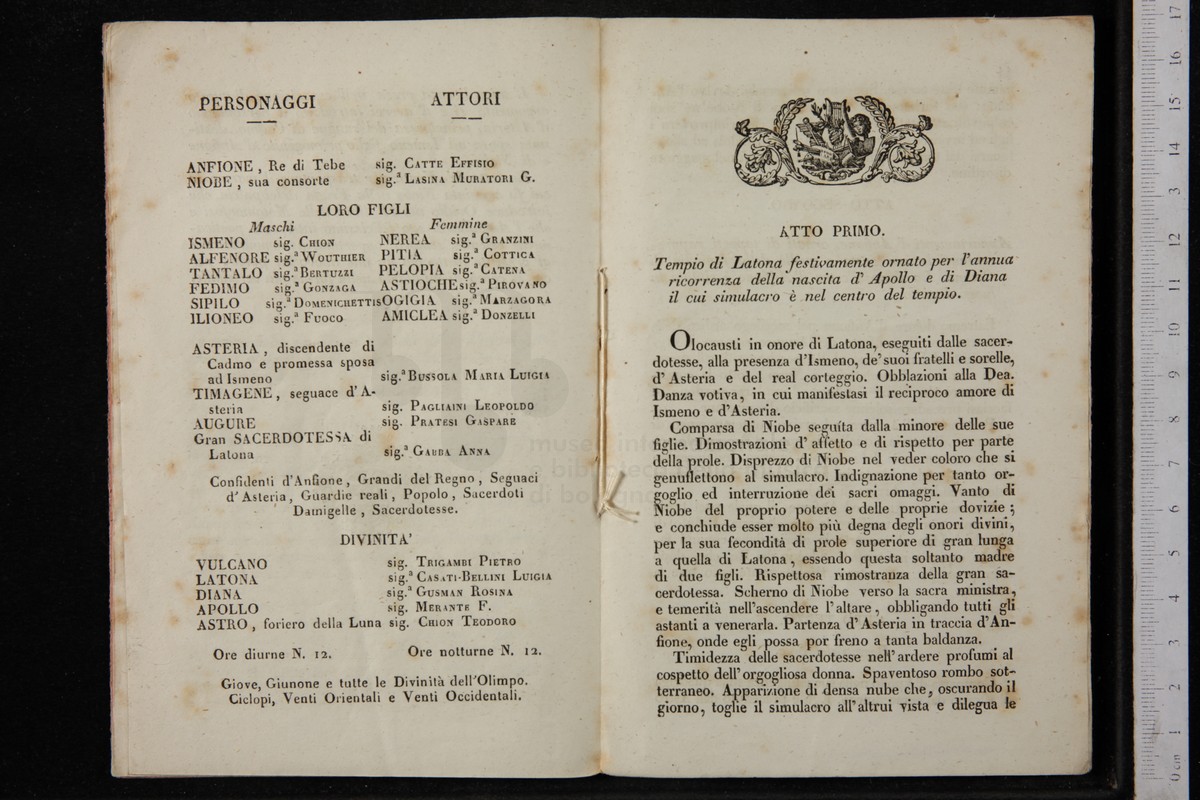 PERSONAGGI ATTORI
ANFIONE , Re di Tebe sig. CATTE EFFISIO
NIOBE , sua consorte sig.ª LASINA MURATORI G.
LORO FIGLI
Maschi Femmine
ISMENO sig. CHION NEREA sig.ª GRANZINI
ALFENORE sig.ª WOUTHIER PITIA sig.ª COTTICA
TANTALO sig.ª BERTUZZI PELOPIA sig.ª CATENA
FEDIMO sig.ª GONZAGA ASTIOCHE sig.ª PIROVANO
SIPILO sig.ª DOMENICHETTIS OGIGIA sig.ª MARZAGORA
ILIONEO sig.ª FUOCO AMICLEA sig.ª DONZELLI
ASTERIA , discendente di
Cadmo e promessa sposa
ad Ismeno sig.ª BUSSOLA MARIA LUIGIA
TIMAGENE , seguace d'A-
steria sig. PAGLIAINI LEOPOLDO
AUGURE sig. PRATESI GASPARE
Gran SACERDOTESSA di
Latona sig.ª GABBA ANNA
Confidenti d'Anfione , Grandi del Regno , Seguaci
d'Asteria , Guardie reali , Popolo , Sacerdoti
Damigelle , Sacerdotesse.
DIVINITA'
VULCANO sig. TRIGAMBI PIETRO
LATONA sig.ª CASATI-BELLINI LUIGIA
DIANA sig.ª GUSMAN ROSINA
APOLLO sig. MERANTE F.
ASTRO , foriero della Luna sig. CHION TEODORO
Ore diurne N. 12. Ore notturne N. 12.
Giove, Giunone e tutte le Divinità dell'Olimpo.
Ciclopi, Venti Orientali e Venti Occidentali.
ATTO PRIMO.
Tempio di Latona festivamente ornato per l'annua
ricorrenza della nascita d' Apollo e di Diana
il cui simulacro è nel centro del tempio.
Olocausti in onore di Latona, eseguiti dalle sacer-
dotesse, alla presenza d'Ismeno, de' suoi fratelli e sorelle,
d' Asteria e del real corteggio. Obblazioni alla Dea.
Danza votiva, in cui manifestasi il reciproco amore di
Ismeno e d'Asteria.
Comparsa di Niobe seguíta dalla minore delle sue
figlie. Dimostrazioni d' affetto e di rispetto per parte
della prole. Disprezzo di Niobe nel veder coloro che si
genuflettono al simulacro. Indignazione per tanto or-
goglio ed interruzione dei sacri omaggi. Vanto di
Niobe del proprio potere e delle proprie dovizie ;
e conchiude esser molto più degna degli onori divini,
per la sua fecondità di prole superiore di gran lunga
a quella di Latona , essendo questa soltanto madre
di due figli. Rispettosa rimostranza della gran sa-
cerdotessa. Scherno di Niobe verso la sacra ministra,
e temerità nell'ascendere l'altare , obbligando tutti gli
astanti a venerarla. Partenza d'Asteria in traccia d'An-
fione, onde egli possa por freno a tanta baldanza.
Timidezza delle sacerdotesse nell' ardere profumi al
cospetto dell' orgogliosa donna. Spaventoso rombo sot-
terraneo. Apparizione di densa nube che, oscurando il
giorno, toglie il simulacro all'altrui vista e dilegua le